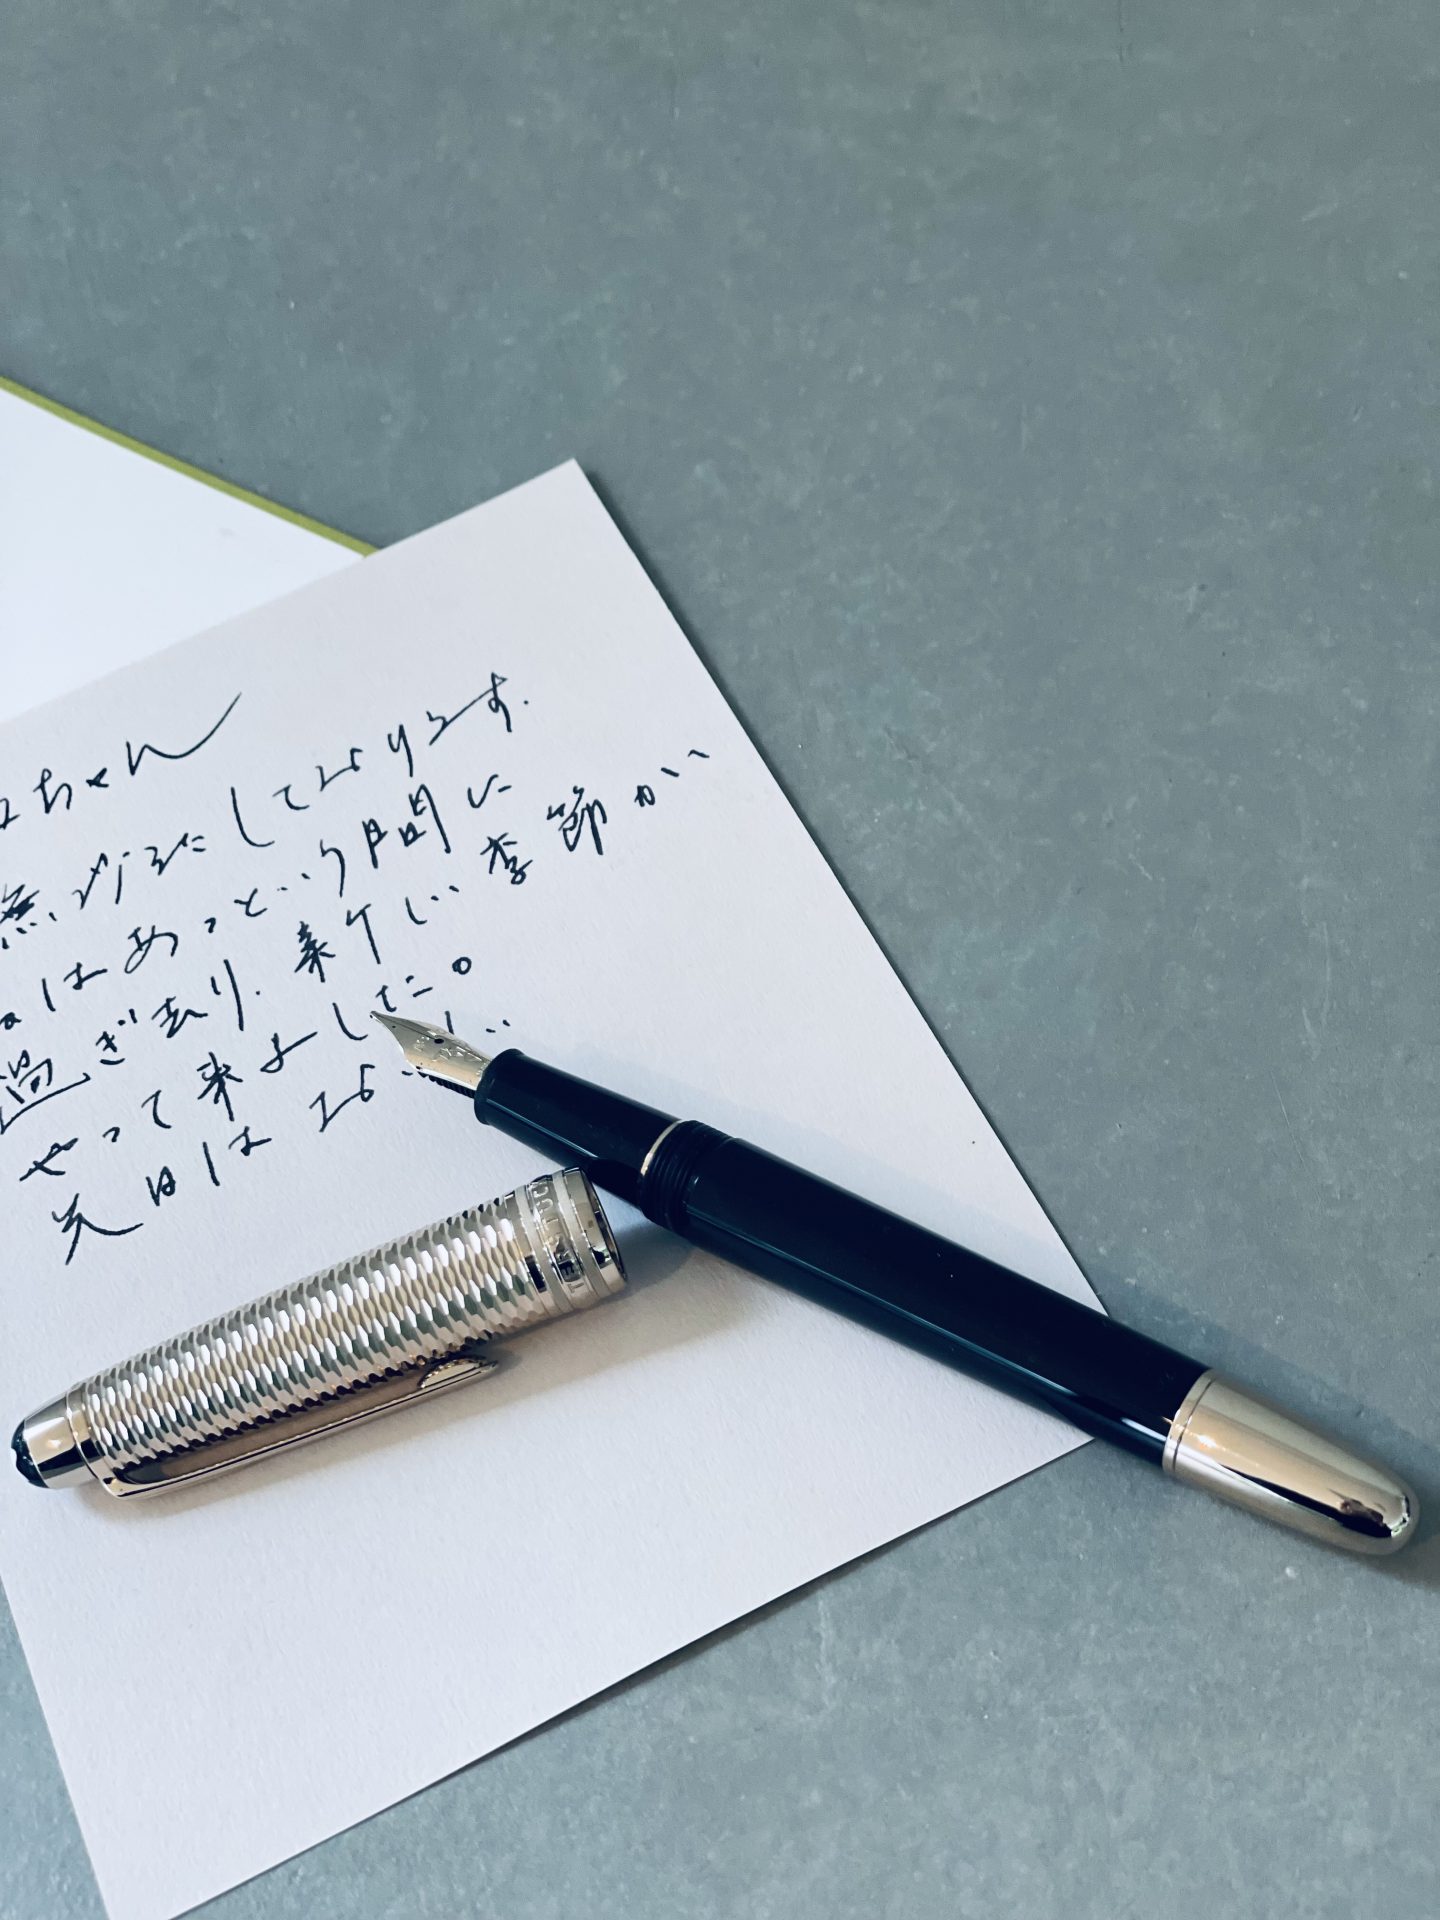 ちゃん
無沙汰しております.
はあっという間に
過ぎ去り. 楽しい季節が
やって来ました。
先日はおい